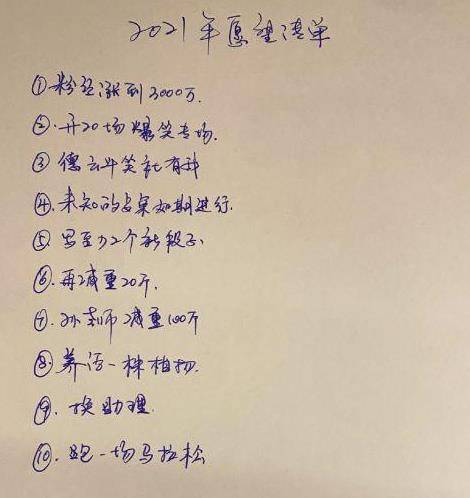 2021年愿望清单
①粉丝涨到3000万.
②.开20场爆笑专场.
③德云斗笑社有我
④.未知的专案如期进行.
⑤.写至少2个新段子
⑥.再减重20斤.
⑦.孙老师减重100斤
⑧.养活一株植物.
⑨.换助理.
⑩.跑一场马拉松